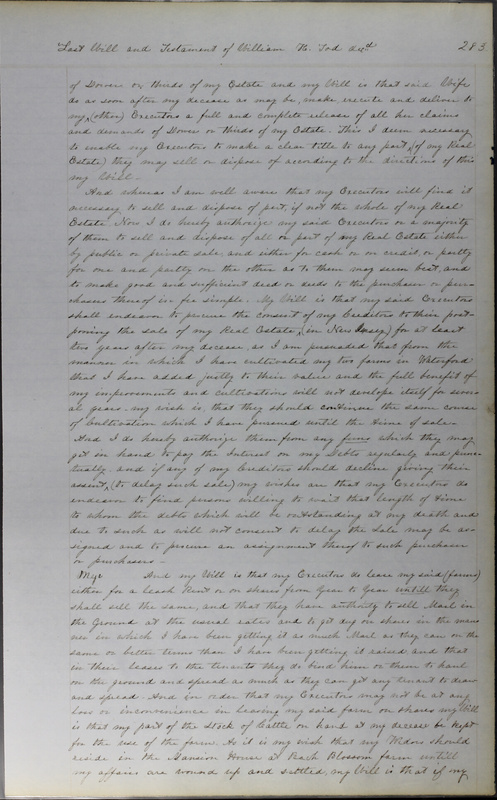 Last Will and Testament of William N. Tod decd. 283
of Dower or thirds of my Estate and my Will is that said Wife
do as soon after my decease as may be, make, execute and deliver to
my (other) Executors a full and complete release of all her claims
and demands of Dower or thirds of my Estate. This I deem necessary
to enable my Executors to make a clear title to any part (of my Real
Estate) they may sell or dispose of according to the directions of this
my Will.
And whereas I am well aware that my Executors will find it
necessary to sell and dispose of part, if not the whole of my Real
Estate Now I do hereby authorize my said Executors or a majority
of them to sell and dispose of all or part of my Real Estate either
by public or private sale, and either for cash or on credit or partly
for one and partly on the other as to them may seem best, and
to make good and sufficient deed or deeds to the purchaser or pur-
chasers thereof in fee simple. My Will is that my said Executors
shall endeavor to procure the consent of my Creditors to their post-
poning the sale of my Real Estate, (in New Jersey,) for at least
two years after my decease, as I am persuaded that from the
manner in which I have cultivated my two farms in Waterford
that I have added justly to their value and the full benefit of
my improvements and cultivations will not develope itself for sever-
al years. my wish is, that they should continue the same course
of Cultivation which I have pursued until the time of sale.
And I do hereby authorize them from any funds which they may
get in hand to pay the Interest on my Debts regularly and punc-
tually and if any of my Creditors should decline giving their
assent (to delay such sale) my wishes are that my Executors do
endeavor to find persons willing to wait that length of time
to whom the debts which will be outstanding at my death and
due to such as will not consent to delay the Sale may be as-
signed and to procure an assignment thereof to such purchaser
or purchasers.
And my Will is that my Executors do lease my said (farms)
either for a Cash Rent or on shares from Year to Year untill they
shall sell the same, and that they have authority to sell Marl in
the Ground at the usual rates and to get dug on shares in the man-
ner in which I have been getting it as much Marl as they can on the
same or better terms than I have been getting it raised and that
in their leases to the tenants they do bind him or them to haul
on the ground and spread as much as they can get any tenant to draw
and spread. And in order that my Executors may not be at any
Loss or inconvenience in leasing my said farm on shares my Will
is that my part of the Stock of Cattle on hand at my decease be kept
for the use of the farm. As it is my wish that my Widow should
reside in the Mansion House at Peach Blossom farm untill
my affairs are wound up and settled, my Will is that if my